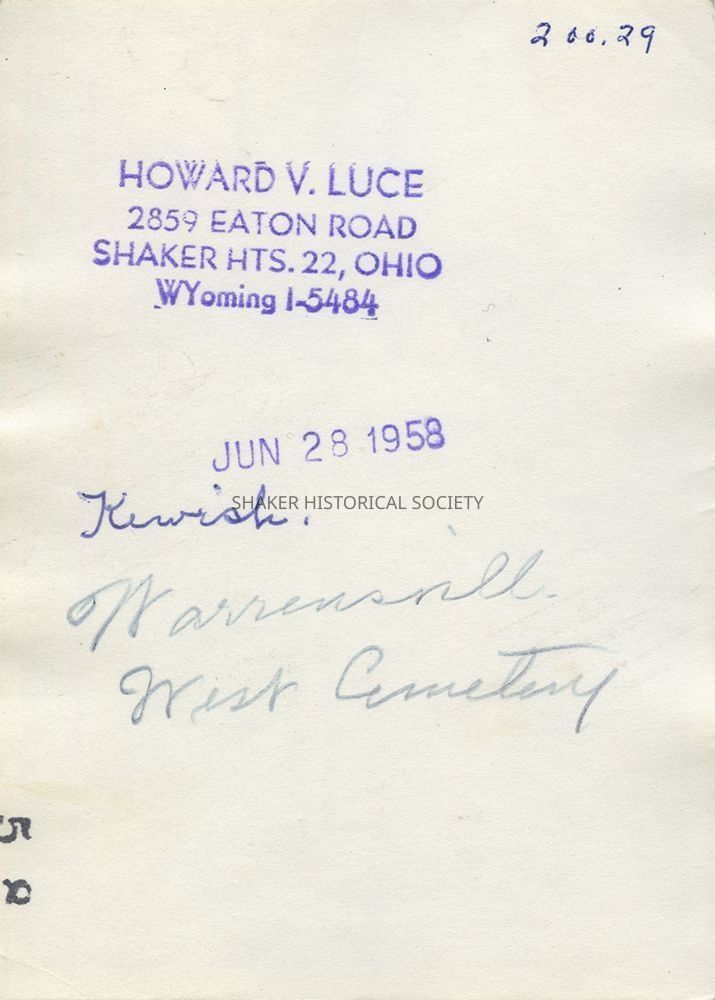 200.29
HOWARD V. LUCE
2859 EATON ROAD
SHAKER HTS. 22, OHIO
WYoming 1-5484
JUN 28 1958
Kewish.
SHAKER HISTORICAL SOCIETY
Warrensvill.
West Cemetery